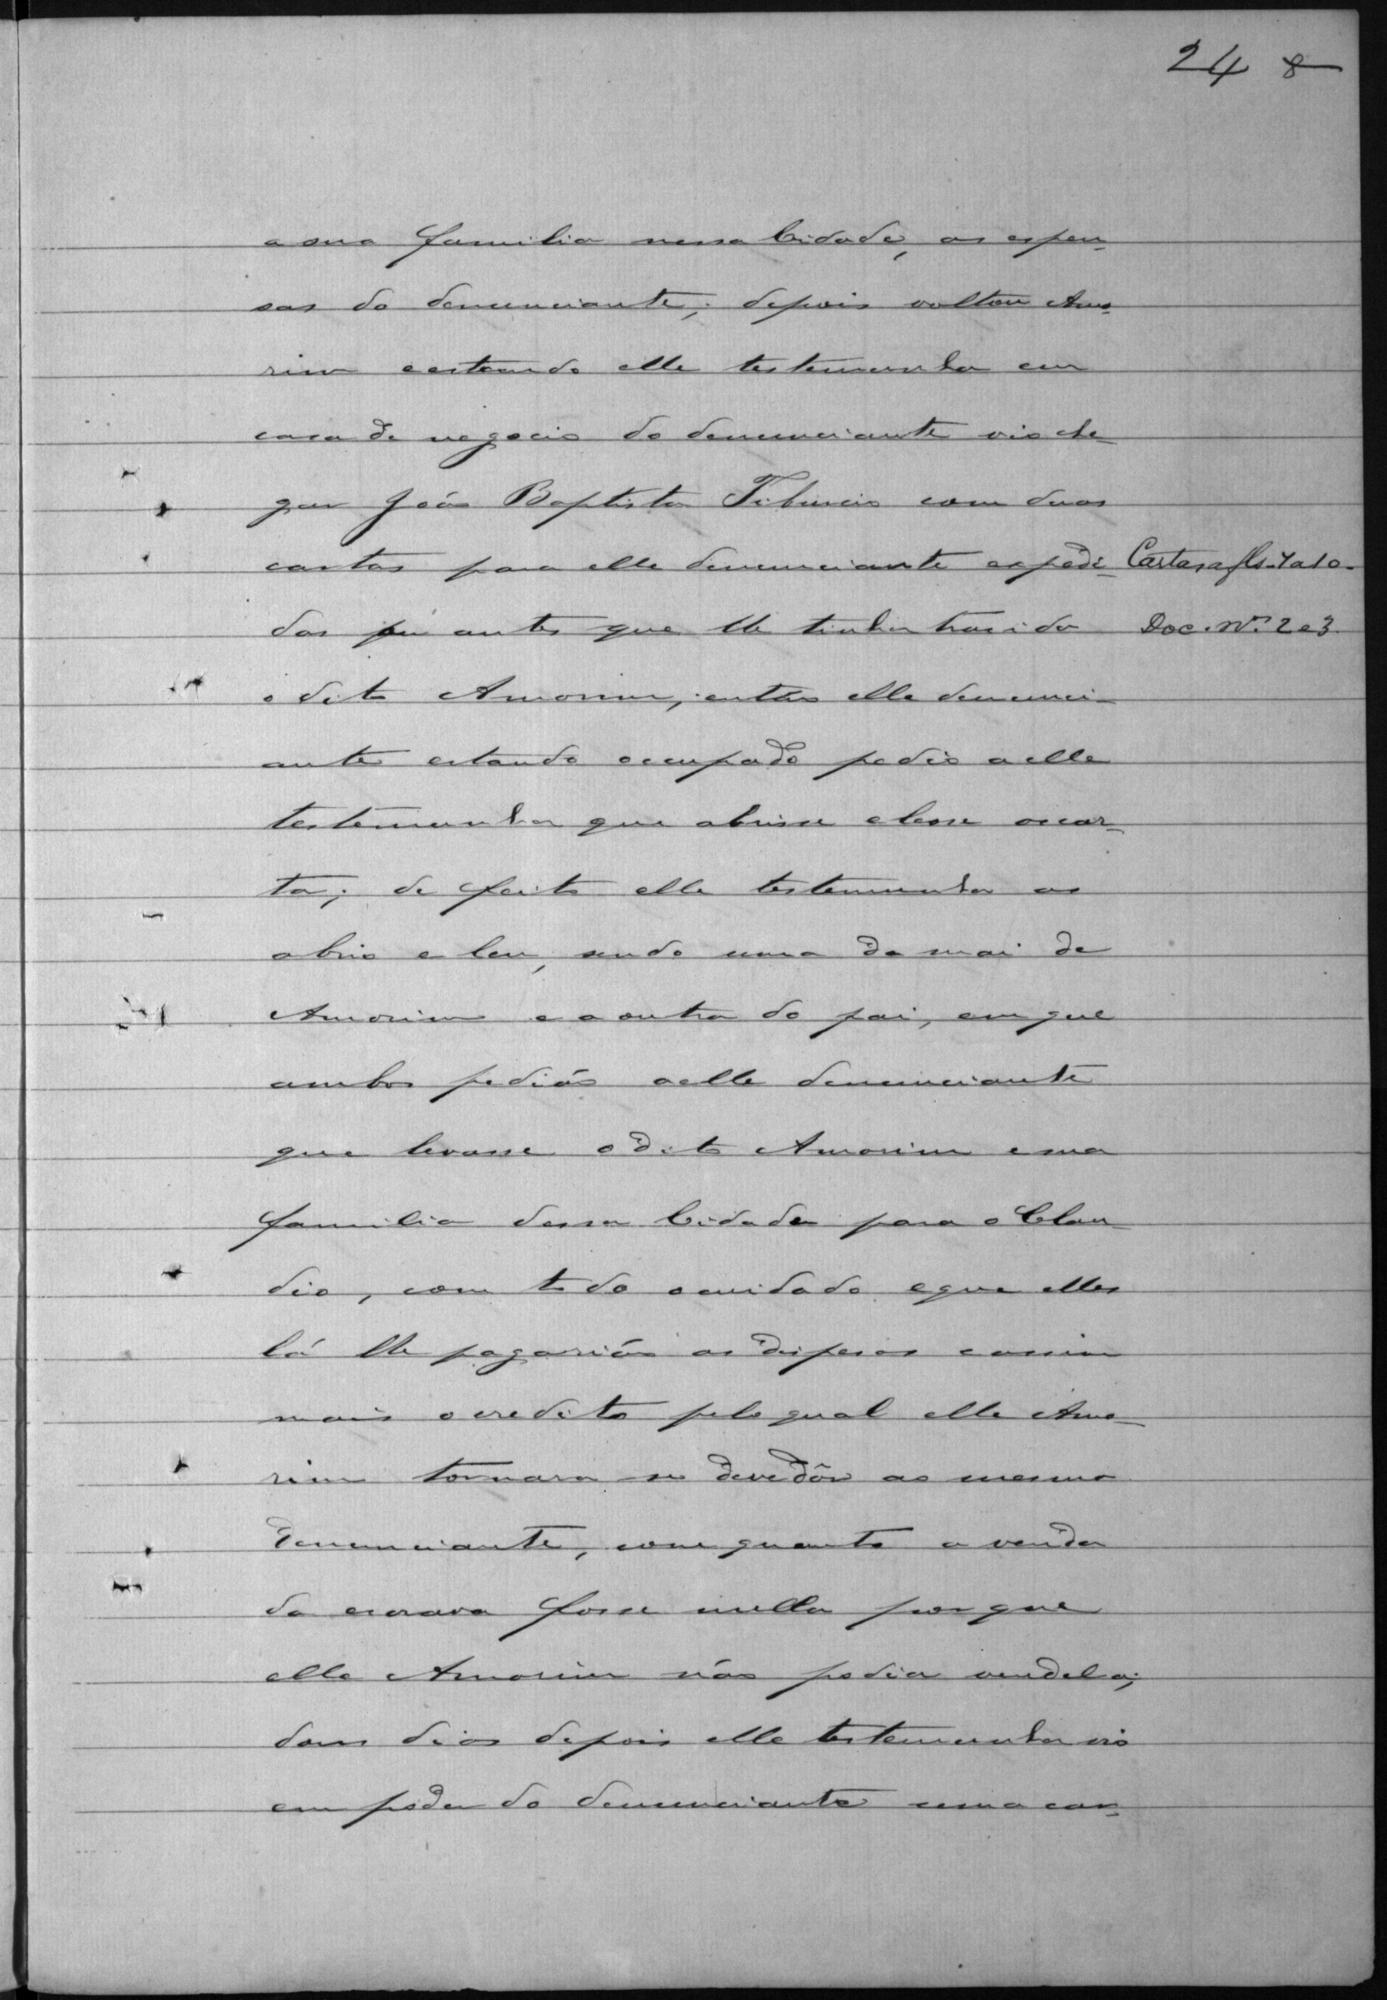 24 8
a sua familia nessa Cidade, as espen-
sas do denunciante; depois voltou Amo-
rim e estando elle testemunha em
casa de negocio do denunciante vio che-
gar João Baptista Tiburcio com duas
cartas para elle denunciante expedi- Cartas a fls. 7 a 10.
das antes que lhe tinha trasido Doc. Nos. 2 e 3.
o dito Amorim, então elle denunci-
ante estando occupado pedio a elle
testemunha que abrisse e lesse as car-
ta; de feito elle testemunha as
abrio e leu, sendo uma da mai de
Amorim e a outra do pai, em que
ambos pedião a elle denunciante
que levasse o dito Amorim e sua
familia dessa Cidade para o Clau-
dio, com todo o cuidado e que elles
lá lhe pagarião as despesas e assim
mais o credito pelo qual elle Amo-
rim tornara se devedôr ao mesmo
denunciante, com quanto a venda
da escrava fosse nulla por que
elle Amorim não podia vendela;
dous dias depois elle testemunha vio
em poder do denunciante uma car-